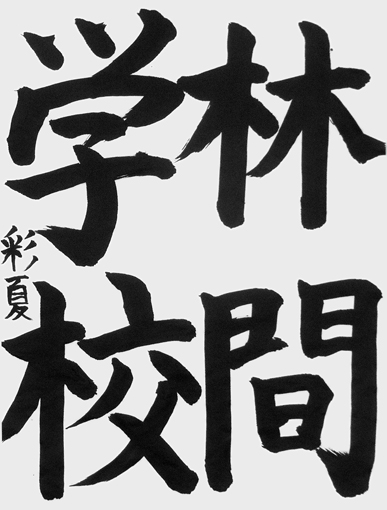 林間
学校
彩夏